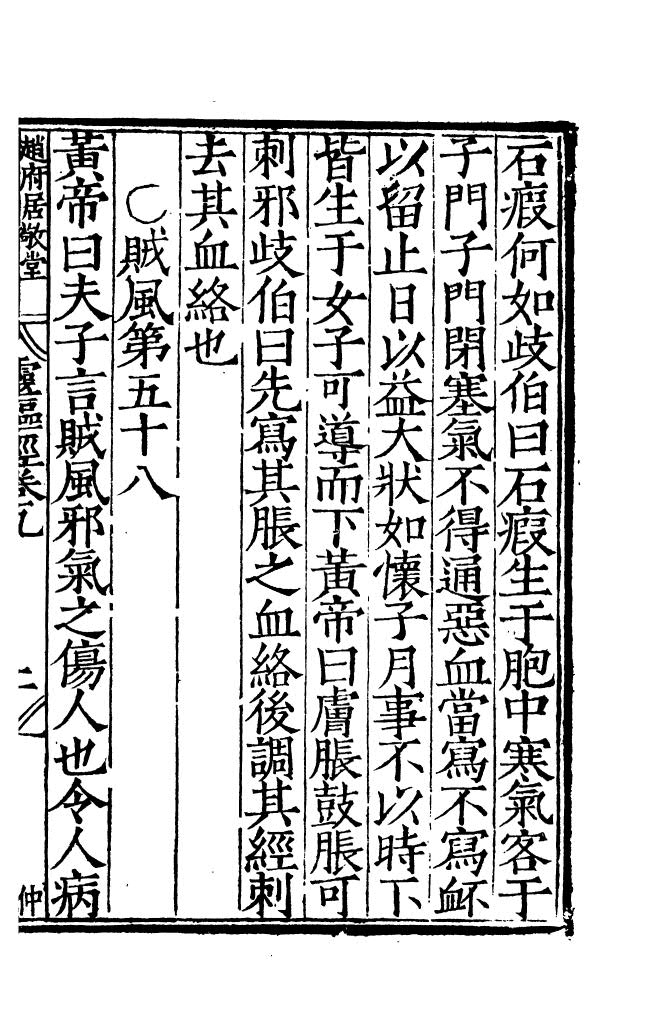 石瘕何如歧伯曰石瘕生于胞中寒氣客于
子門子門閉塞氣不得通惡血當寫不寫衃
以留止日以益大狀如懷子月事不以時下
皆生于女子可導而下黃帝曰膚脹鼓脹可
刺邪歧伯曰先寫其脹之血絡後調其經刺
去其血絡也
賊風第五十八
黃帝曰夫子言賊風邪氣之傷人也令人病
趙府居敬堂
靈樞經卷九
仲